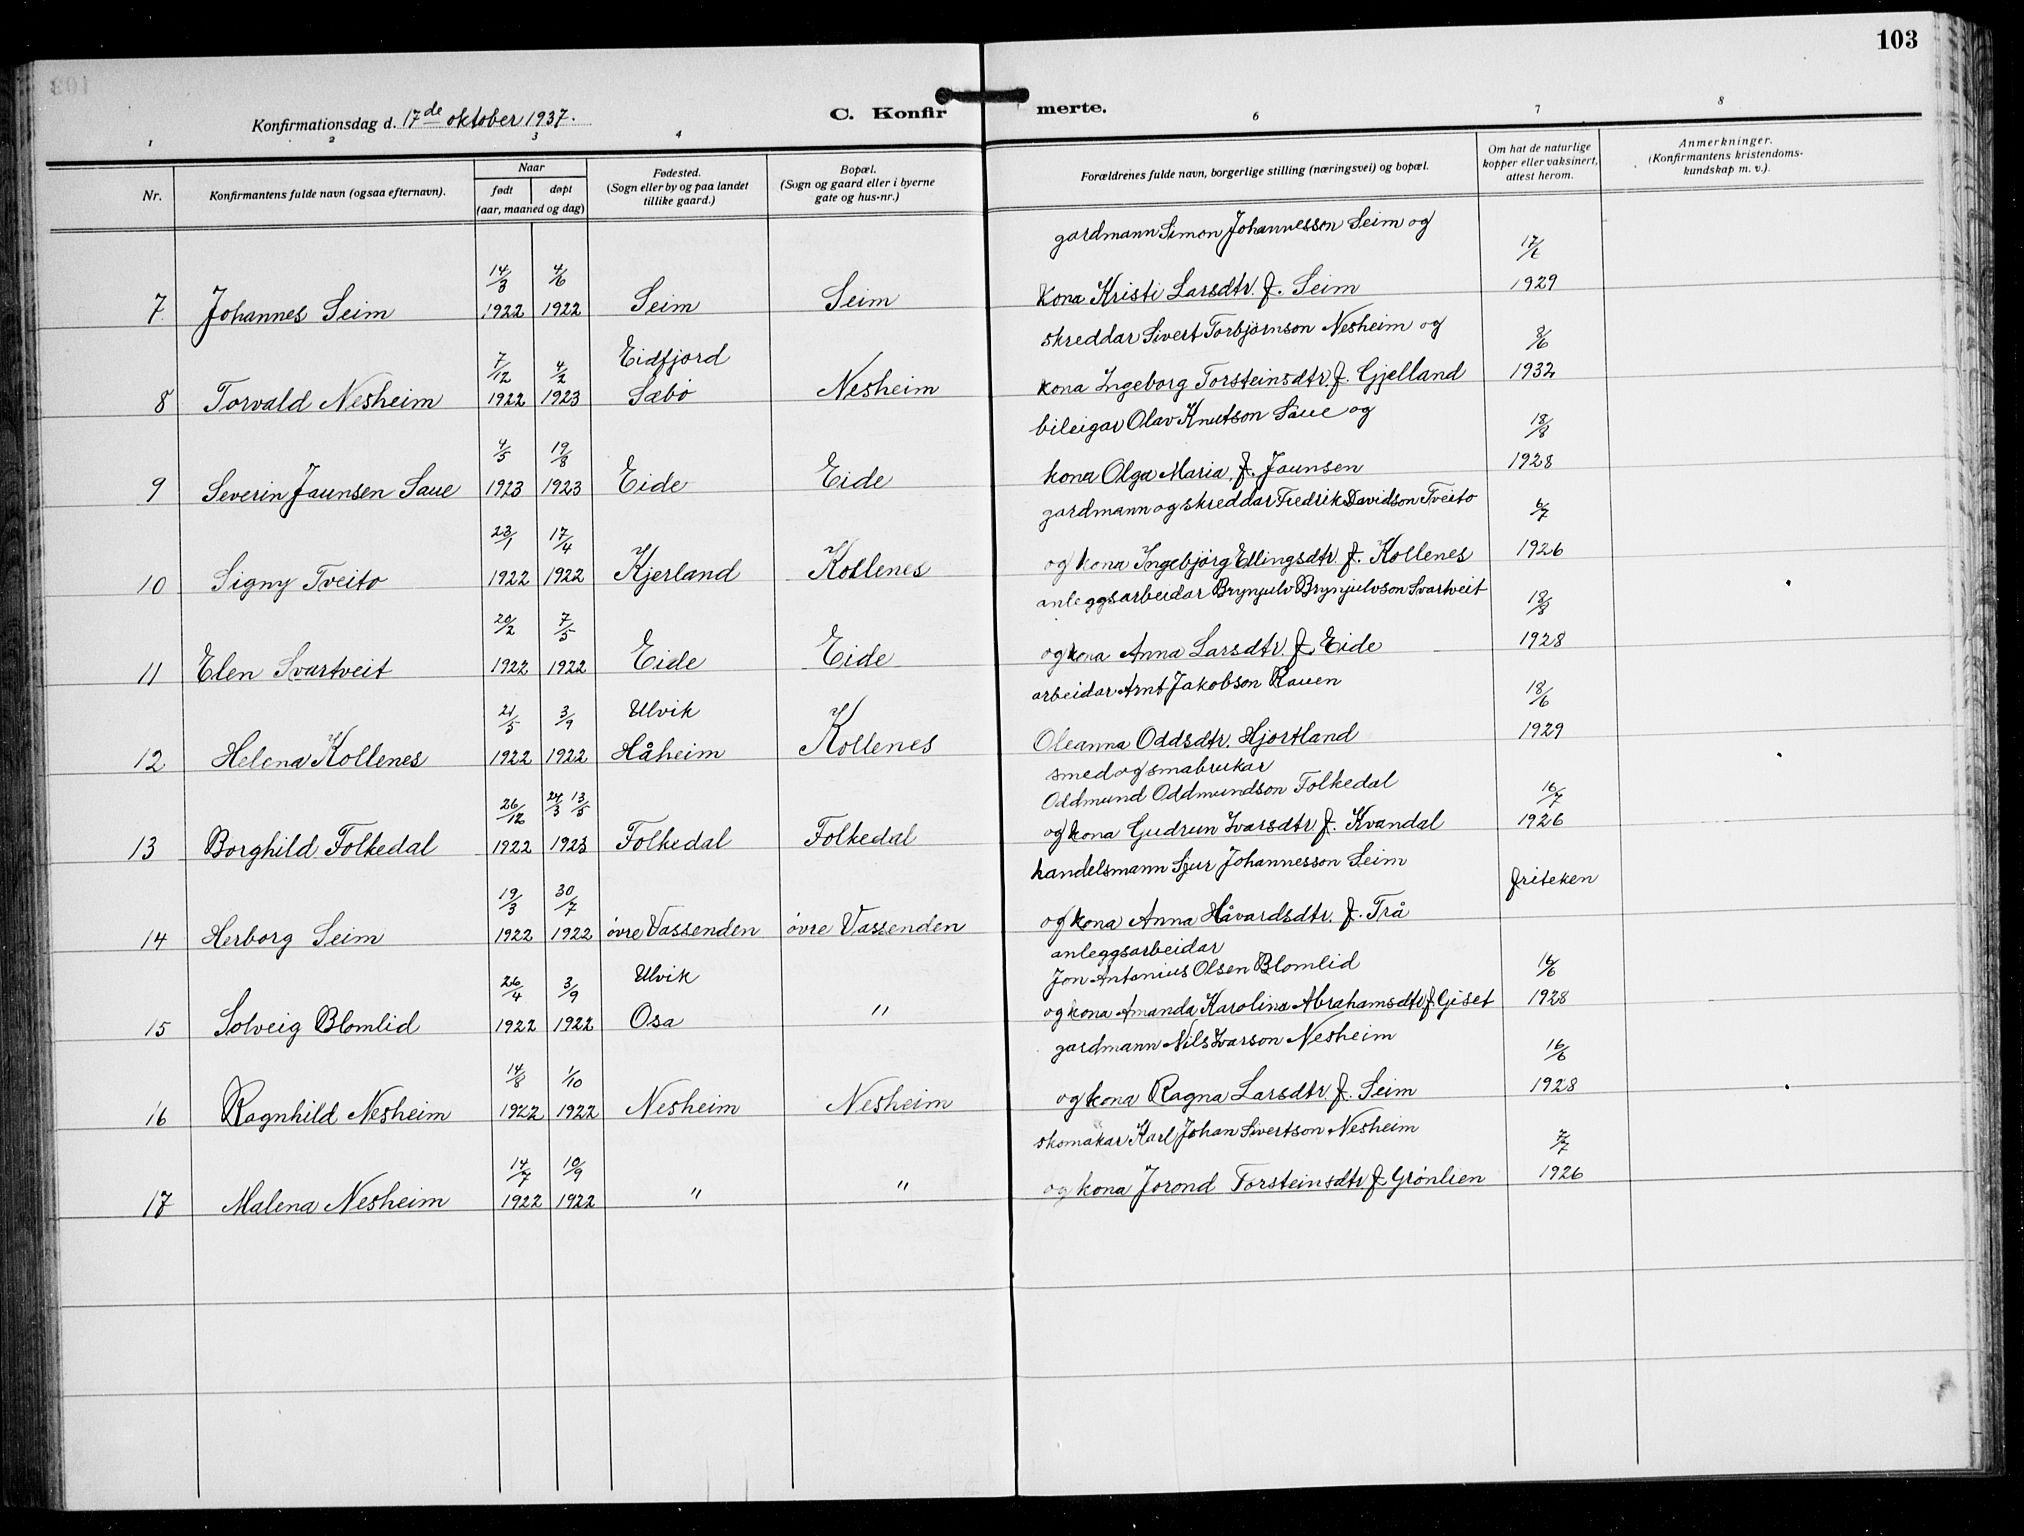 103
Konfirmationsdag d. 17de oktober 1937.
C. Konfirmerte.
1 2 3 4 6 7 8
Nr.
Konfirmantens fulde navn (ogsaa efternavn).
Naar
født døpt
(aar, maaned og dag)
Fødested.
(Sogn eller by og paa landet
tillike gaard.)
Bopæl.
(Sogn og gaard eller i byerne
gate og hus-nr.)
Forældrenes fulde navn, borgerlige stilling (næringsvei) og bopæl.
Om hat de naturlige
kopper eller vaksinert,
attest herom.
Anmerkninger.
(Konfirmantens kristendoms-
kundskap m. v.).
gardmann Simon Johannesson Seim og
14/3 4/6 17/6
7 Johannes Seim 1922 1922 Seim Seim kona Kristi Larsdtr. f. Seim 1929
skreddar Sivert Torbjørnson Nesheim og
7/12 4/2 Eidfjord 8/6
8 Torvald Nesheim 1922 1923 Sæbø Nesheim kona Ingeborg Torsteinsdtr. f. Gjelland 1932
bileigar Olav Knutson Saue og
4/5 19/8 18/8
9 Severin Jaunsen Saue 1923 1923 Eide Eide kona Olga Maria f. Jaunsen 1928
gardmann og skreddar Fredrik Davidson Tveito
23/1 17/4 6/7
10 Signy Tveito 1922 1922 Kjerland Kollenes og kona Ingebjørg Ellingsdtr. f. Kollenes 1926
anleggsarbeidar Brynjulv Brynjulvson Svartveit
20/2 7/5 18/8
11 Elen Svartveit 1922 1922 Eide Eide og kona Anna Larsdtr. f. Eide 1928
arbeidar Arnt Jakobson Rauen
21/5 3/9 Ulvik 18/6
12 Helena Kollenes 1922 1922 Håheim Kollenes Oleanna Oddsdtr. Hjortland 1929
smed og smabrukar
Oddmund Oddmundson Folkedal
26/12 24/3 13/5 16/7
13 Borghild Folkedal 1922 1923 Folkedal Folkedal og kona Gudrun Ivarsdtr. f. Kvandal 1926
handelsmann Sjur Johannesson Seim
19/3 30/7 friteken
14 Herborg Seim 1922 1922 øvre Vassenden øvre Vassenden og kona Anna Håvardsdtr. f. Trå
anleggsarbeidar
Jon Antonius Olsen Blomlid
26/4 3/9 Ulvik 16/6
15 Solveig Blomlid 1922 1922 Osa " og kona Amanda Karolina Abrahamsdtr f. Giset 1928
gardmann Nils Ivarson Nesheim
14/8 1/10 16/6
16 Ragnhild Nesheim 1922 1922 Nesheim Nesheim og kona Ragna Larsdtr. f. Seim 1928
skomakar Karl Johan Sivertson Nesheim
14/7 10/9 7/7
17 Malena Nesheim 1922 1922 " " og kona Jorond Torsteinsdtr f. Grønlien 1926